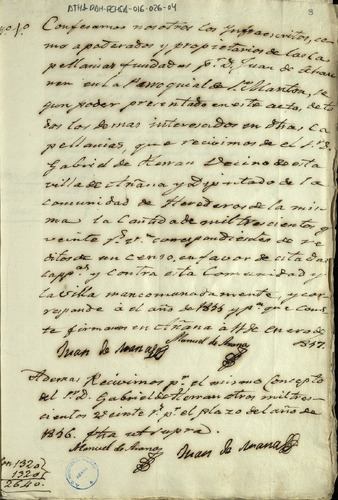 ATHA-DAH-FCHSA-016-026-04
3
Confesamos nosotros los Infraescritos, co-
mo apoderados y propietarios de las Ca-
pellanias fundadas pr. D. Juan de
ren en la Parroquial de Sn. Martin, se-
gun poder presentado en este acto, de to-
dos los demas interesados en dhas. Ca-
pellanias, que recivimos del Sr. D.
Gabriel de Herran Vecino de esta
villa de Añana y Diputado de la
comunidad de Herederos de la mis-
ma la Cantidad de mil trescientos y
veinte rs. vn. correspondientes de re-
ditos de un censo, en favor de citadas
capps. y contra esta Comunidad y
la Villa mancomunadamente, y corres-
ponde á el año de 1855 y pa. que cons-
te firmamos en Añana á 4 de enero de
1857.
Juan de Manuel de
Ademas Recivimos pr. el mismo Concepto
del Sr. D. Gabriel de Herran otros mil tres-
cientos Veinte rs. pr. el plazo del año de
1856. fha ut supra.
Manuel de Juan de
1320
1320
2640